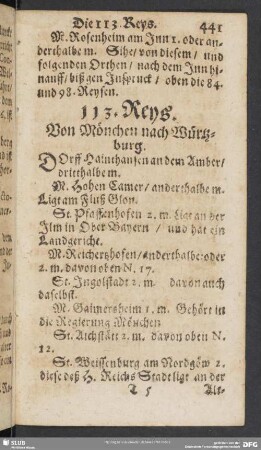 Die 113. Reys. 441
M. Rosenheim am Inn 1. oder an-
derthalbe m. Sihe/ von diesem/ und
folgenden Orthen/ nach dem Inn hi-
nauff/ biß gen Inspruck/ oben die 84.
und 98. Reysen.
113. Reys.
Von Mönchen nach Würtz-
burg.
DOrff Haimhausen an dem Amber/
dritthalbe m.
M. Hohen Camer/ anderthalbe m.
Ligt am Fluß Glon.
St. Pfaffenhofen 2. m. Ligt an der
Ilm in Ober Bayern / und hat ein
Landgericht.
M. Reichertzhofen/ anderthalbe oder
2. m. davon oben N. 17.
St. Ingolstadt 2. m. davon auch
daselbst.
M. Gaimersheim 1. m. Gehört in
die Regierung Mönchen
St. Aichstätt 2. m. davon oben N.
12.
St. Weissenburg am Nordgöw 2.
diese deß H. Reichs Stadt ligt an der
T 5 Alt-
SLUB
DFG